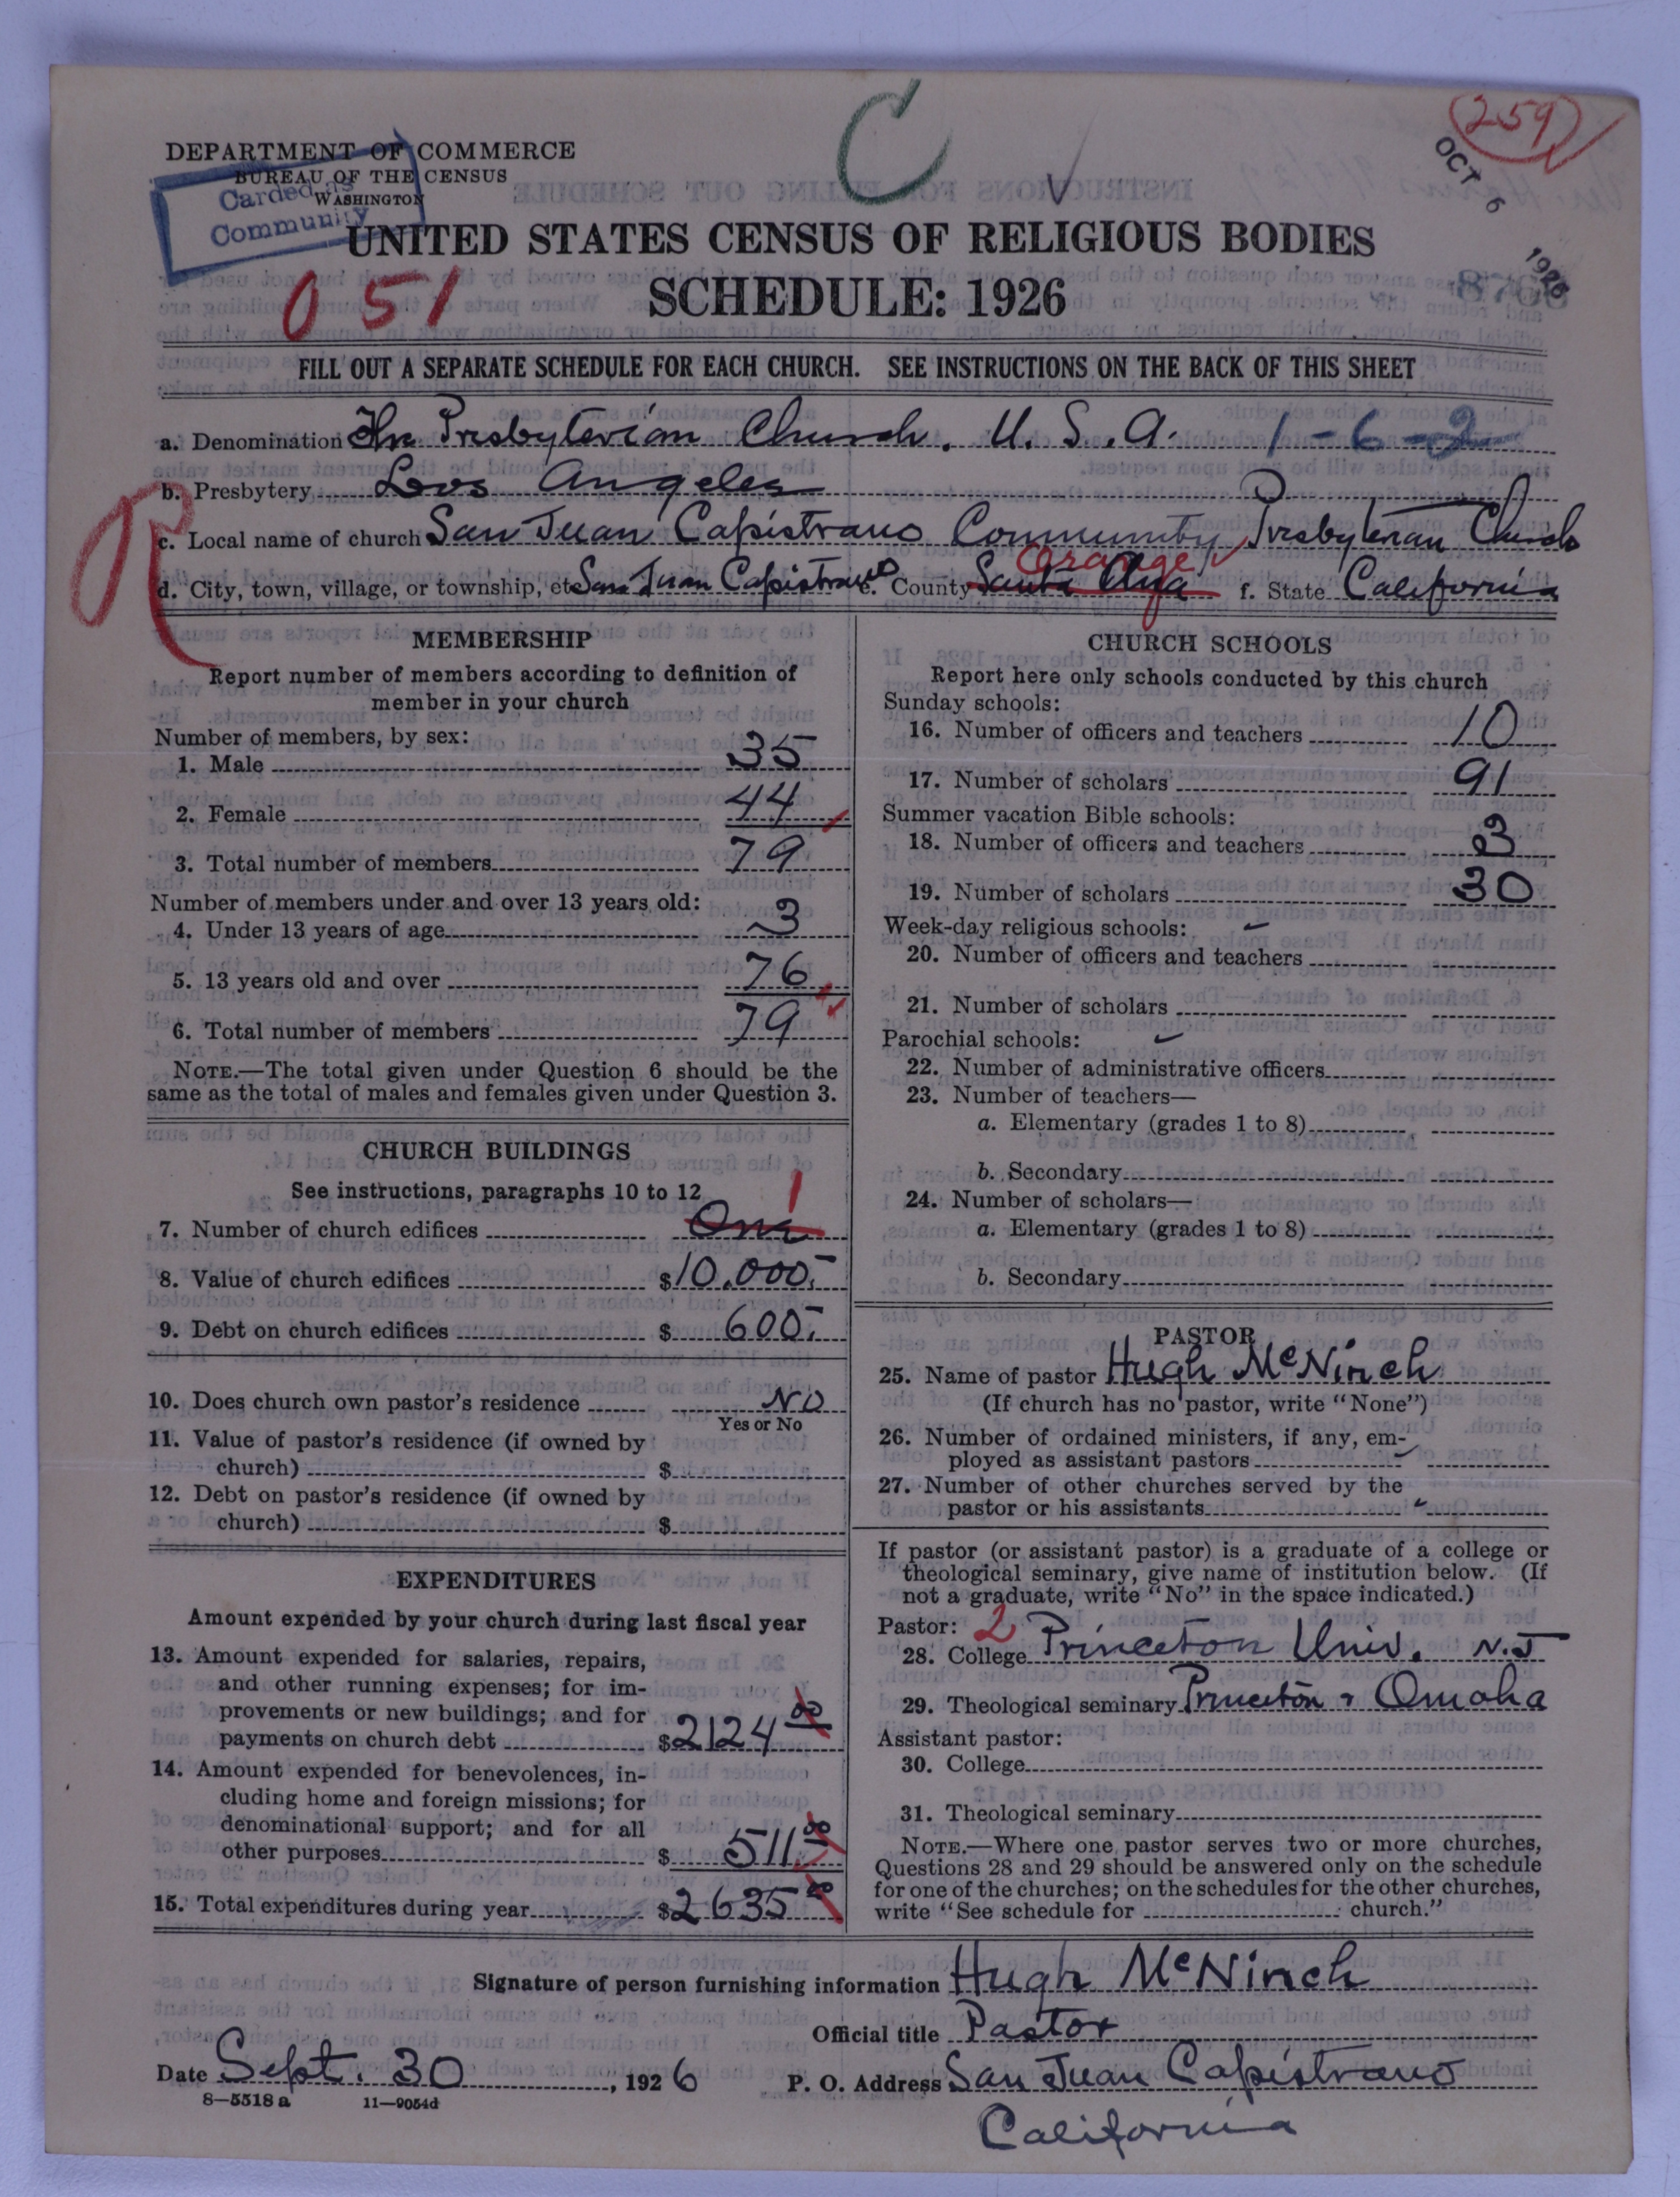 DEPARTMENT OF COMMERCE
BUREAU OF THE CENSUS
WASHINGTON
Carded as
Community
C
259
OCT 6 1926
UNITED STATES CENSUS OF RELIGIOUS BODIES
051
SCHEDULE: 1926
FILL OUT A SEPARATE SCHEDULE FOR EACH CHURCH. SEE INSTRUCTIONS ON THE BACK OF THIS SHEET
a. Denomination The Presbyterian Church, U. S. A. 1-6-2
b. Presbytery Los Angeles
R
c. Local name of church San Juan Capistrano Community Presbyterian Church
d. City, town, village, or township, etc San Juan Capistrano e. County Santa Ana Orange f. State California
MEMBERSHIP
Report number of members according to definition of
member in your church
Number of members, by sex:
1. Male 35
2. Female 44
3. Total number of members 79
Number of members under and over 13 years old:
4. Under 13 years of age 3
5. 13 years old and over 76
6. Total number of members 79
NOTE.—The total given under Question 6 should be the
same as the total of males and females given under Question 3.
CHURCH BUILDINGS
See instructions, paragraphs 10 to 12
7. Number of church edifices One 1
8. Value of church edifices $10,000.-
9. Debt on church edifices $ 600.-
10. Does church own pastor's residence NO
Yes or No
11. Value of pastor's residence (if owned by
church) $
12. Debt on pastor's residence (if owned by
church) $
EXPENDITURES
Amount expended by your church during last fiscal year
13. Amount expended for salaries, repairs,
and other running expenses; for im-
provements or new buildings; and for
payments on church debt $2124 00
14. Amount expended for benevolences, in-
cluding home and foreign missions; for
denominational support; and for all
other purposes $ 511 00
15. Total expenditures during year $2635 00
CHURCH SCHOOLS
Report here only schools conducted by this church
Sunday schools:
16. Number of officers and teachers 10
17. Number of scholars 91
Summer vacation Bible schools:
18. Number of officers and teachers
19. Number of scholars 30
Week-day religious schools:
20. Number of officers and teachers
21. Number of scholars
Parochial schools:
22. Number of administrative officers
23. Number of teachers—
a. Elementary (grades 1 to 8)
b. Secondary
24. Number of scholars—
a. Elementary (grades 1 to 8)
b. Secondary
PASTOR
25. Name of pastor Hugh McNinch
(If church has no pastor, write "None")
26. Number of ordained ministers, if any, em-
ployed as assistant pastors
27. Number of other churches served by the
pastor or his assistants
If pastor (or assistant pastor) is a graduate of a college or
theological seminary, give name of institution below. (If
not a graduate, write "No" in the space indicated.)
Pastor: 2
28. College Princeton Univ. N.J
29. Theological seminary Princeton & Omaha
Assistant pastor:
30. College
31. Theological seminary
NOTE.—Where one pastor serves two or more churches,
Questions 28 and 29 should be answered only on the schedule
for one of the churches; on the schedules for the other churches,
write "See schedule for church."
Signature of person furnishing information Hugh McNinch
Official title Pastor
Date Sept. 30, 1926 P. O. Address San Juan Capistrano
8—5518 a 11—9054d
California